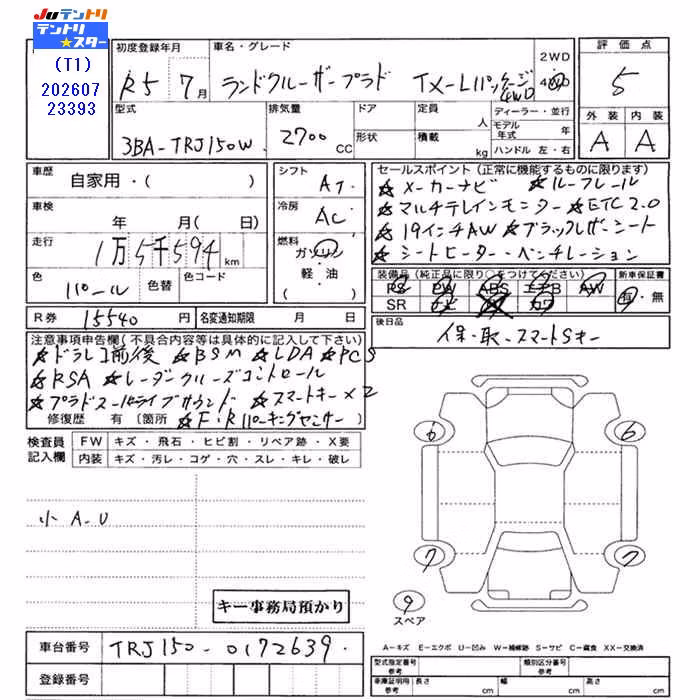 JUテントリ
テントリ★スター
(T1)
202607
23393
初度登録年月
R5 7月
車名・グレード
ランドクルーザープラド TX-Lパッケージ 4WD
2WD
4WD
評価点
5
外装 内装
A A
型式
3BA-TRJ150W
排気量
2700 CC
ドア
形状
定員 人
積載 kg
ディーラー・並行
モデル年式 年
ハンドル 左・右
車歴
自家用・( )
シフト
AT
車検
年 月( 日)
冷房
AC
走行
1万5千594 km
燃料
ガソリン
軽・油
色
パール
色替
色コード
R券 15540 円
名変通知期限 月 日
セールスポイント(正常に機能するものに限ります)
☆メーカーナビ ☆ルーフレール
☆マルチテレインモニター ☆ETC2.0
☆19インチAW ☆ブラックレザーシート
☆シートヒーター・ベンチレーション
装備品(純正品に限り○をつけてください)
PS PW ABS エアB AW
SR ナビ カワ
新車保証書
有・無
後日品
保・取・スマートSキー
注意事項申告欄(不具合内容等は具体的に記入して下さい)
☆ドラレコ前後 ☆BSM ☆LDA ☆PCS
☆RSA ☆レーダークルーズコントロール
☆プラドスーパーライブサウンド ☆スマートキー×2
修復歴 有 〔箇所 ☆F・Rパーキングセンサー 〕
検査員記入欄
FW キズ・飛石・ヒビ割・リペア跡・X要
内装 キズ・汚レ・コゲ・穴・スレ・キレ・破レ
小A-U
キー事務局預かり
6 6
7 7
9
スペア
車台番号 TRJ150-0172639
登録番号
A-キズ E-エクボ U-凹み W-補修跡 S-サビ C-腐食 XX-交換済
型式指定番号 参考
類別区分番号 参考
車庫証明用 参考
長さ cm
幅 cm
高さ cm